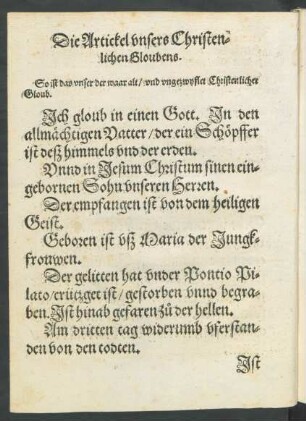 Die Artickel vnsers Christen-
lichen Gloubens.
So ist das vnser der waar alt / vnd vngezwyflet Christenlicher
Gloub.
Ich gloub in einen Gott. In den
allmächtigen Vatter / der ein Schöpffer
ist deß himmels vnd der erden.
Vnnd in Jesum Christum sinen ein-
gebornen Sohn vnseren Herren.
Der empfangen ist von dem heiligen
Geist.
Geboren ist vß Maria der Jungk-
frouwen.
Der gelitten hat vnder Pontio Pi-
lato / crützget ist / gestorben vnnd begra-
ben. Ist hinab gefaren zů der hellen.
Am dritten tag widerumb vferstan-
den von den todten.
Ist